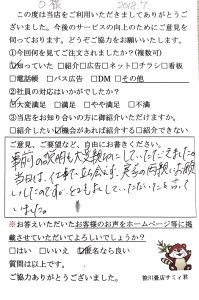 O様　2018.7
この度は当店をご利用いただきましてありがとうご
ざいました。今後のサービスの向上のためにご意見を
伺っております。どうぞご協力をお願いいたします。
①今回何を見てご注文されましたか?(複数可)
☑知っていた □紹介 □広告 □ネット □チラシ □看板
□電話帳 □バス広告 □DM □その他
②社員の対応はいかがでしたか?
☑大変満足 □満足 □やや満足 □不満
③当店をお知り合いの方に御紹介いただけますか。
□紹介したい ☑機会があれば紹介する □紹介できない
ご意見、ご要望など、自由にお書きください。
事前の説明も大変親切にしていただきました。
当日は、仕事で立ち会えず、実家の両親にお願い
したのですが、とても良くしていただいたと言って
いました。
※お答えいただいたお客様のお声をホームページ等に掲
載させていただいてよろしいでしょうか?
□はい □いいえ ☑匿名なら良い
質問は以上です。
ご協力ありがとうございました。
笹川畳店サミィ君